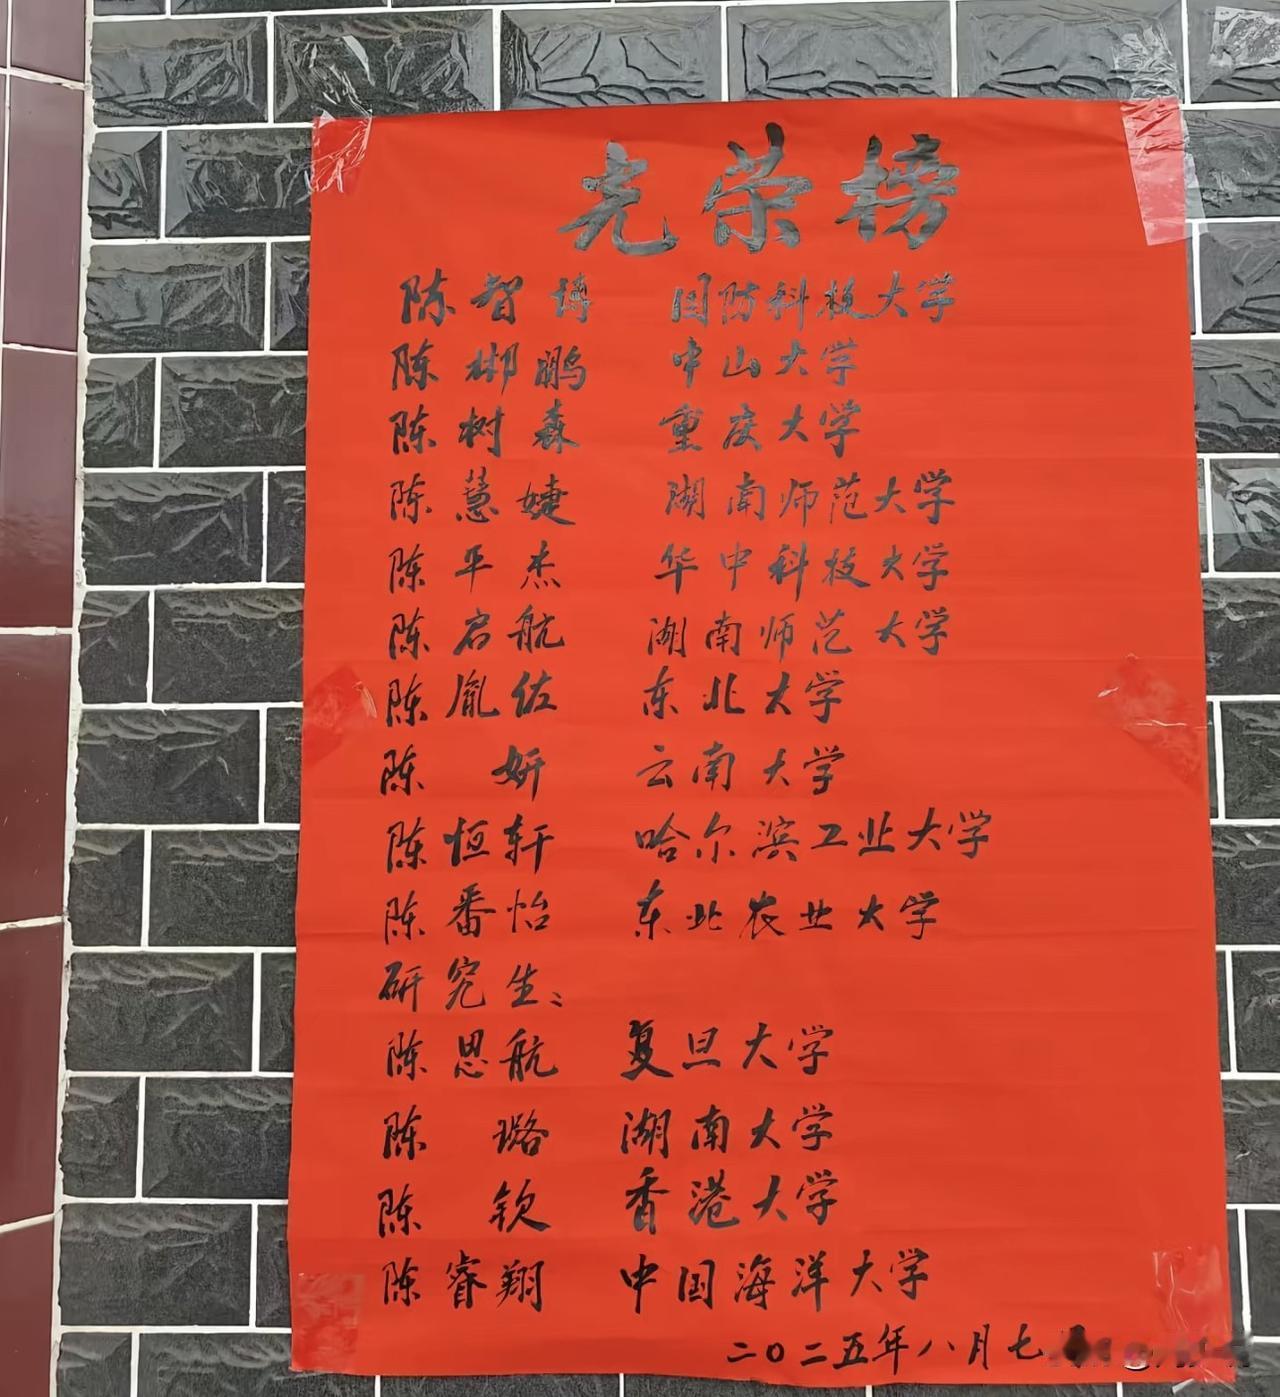 光荣榜
陈智博 国防科技大学
陈彬鹏 中山大学
陈树森 重庆大学
陈慧婕 湖南师范大学
陈平杰 华中科技大学
陈启航 湖南师范大学
陈胤佐 东北大学
陈妍 云南大学
陈恒轩 哈尔滨工业大学
陈番怡 东北农业大学
研究生:
陈思航 复旦大学
陈璐 湖南大学
陈钦 香港大学
陈睿翔 中国海洋大学
二〇二五年八月七